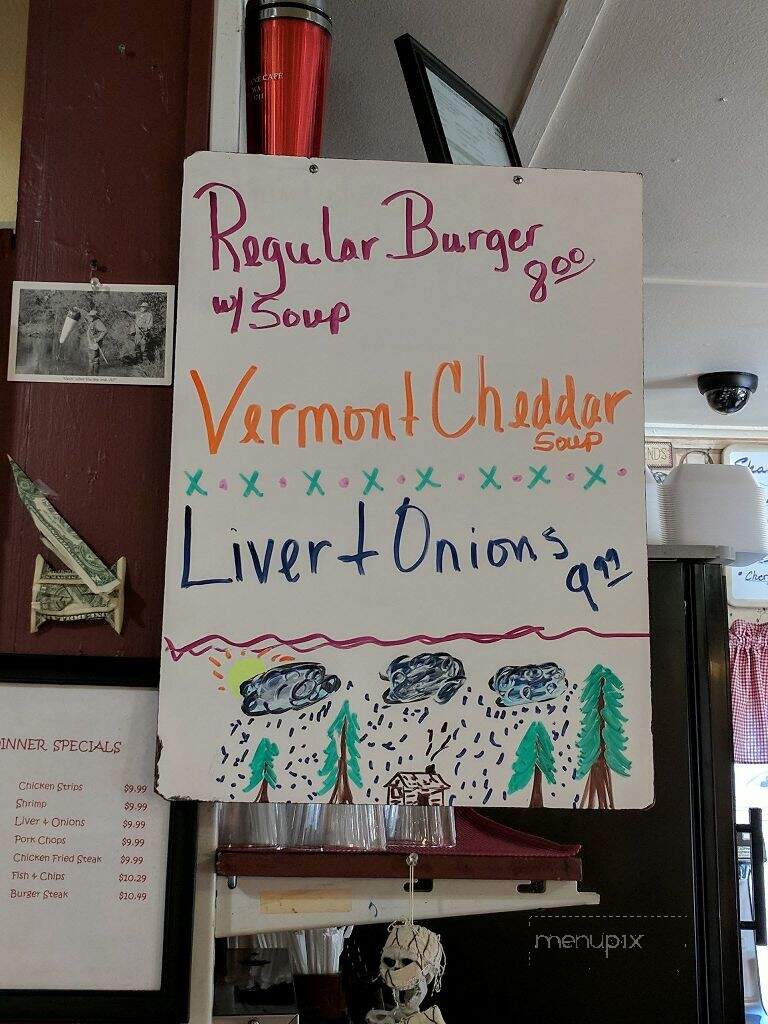 Regular Burger 8⁰⁰
w/ Soup
Vermont Cheddar
Soup
Liver + Onions 9⁹⁹
INNER SPECIALS
Chicken Strips $9.99
Shrimp $9.99
Liver & Onions $9.99
Pork Chops $9.99
Chicken Fried Steak $9.99
Fish & Chips $10.29
Burger Steak $10.49
CAFE
WA
Cher
menupix